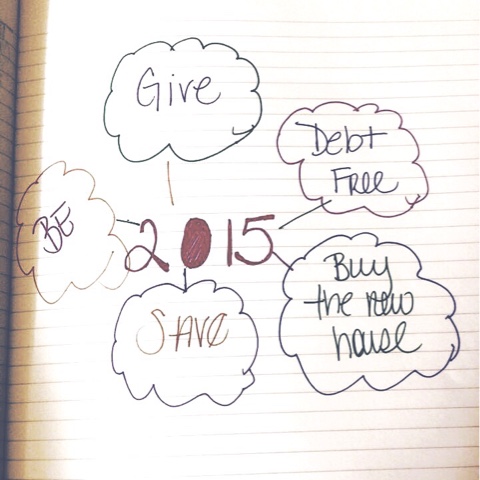 Give
Debt
Free
BE
2015
SAVE
Buy
the new
house